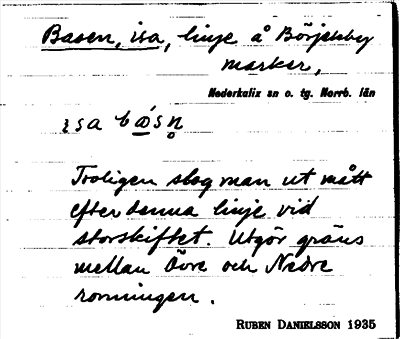 Basen, isa, linje å Börjelsby
marker,
Nederkalix sn o. tg. Norrb. län
Troligen slog man ut mått
efter denna linje vid
storskiftet. Utgör gräns
mellan Övre och Nedre
ronningen.
RUBEN DANIELSSON 1935